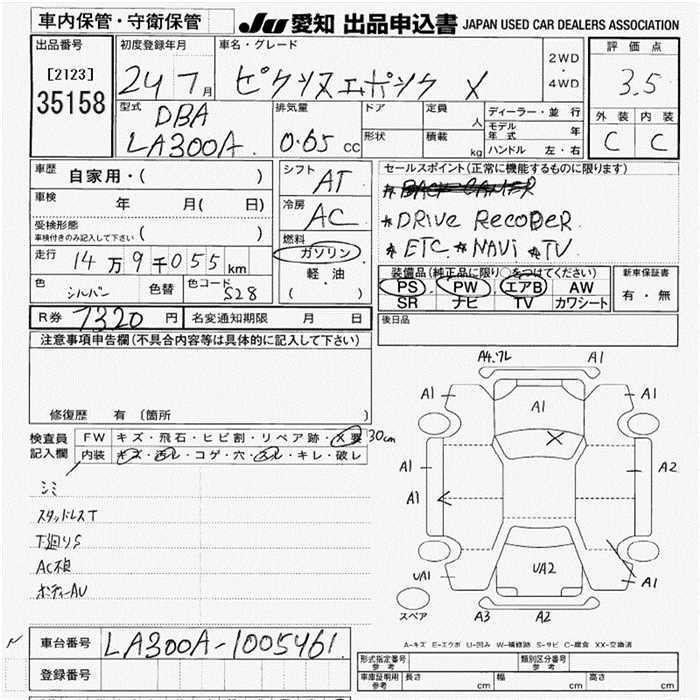 車内保管・守衛保管
JU 愛知 出品申込書 JAPAN USED CAR DEALERS ASSOCIATION
出品番号
[2123]
35158
初度登録年月
24 7月
車名・グレード
ピクシスエポック X
2WD
・
4WD
評価点
3.5
外装 内装
C C
型式
DBA
LA300A
排気量
0.65 CC
ドア
形状
定員
人
積載
kg
ディーラー・並行
モデル年式 年
ハンドル 左・右
車歴
自家用・( )
車検
年 月( 日)
受検形態
車検付きのみ記入して下さい ( )
走行
14万9千055km
色
シルバー
色替
色コード
S28
シフト
AT
冷房
AC
燃料
ガソリン
軽油
( )
セールスポイント(正常に機能するものに限ります)
* DRIVE RECOBER
* ETC * NAVi * TV
装備品(純正品に限り○をつけてください)
PS PW エアB AW
SR ナビ TV カワシート
新車保証書
有・無
R券 7320円
名変通知期限 月 日
後日品
注意事項申告欄(不具合内容等は具体的に記入して下さい)
修復歴 有〔箇所 〕
検査員
記入欄
FW キズ・飛石・ヒビ割・リペア跡・X要 30cm
内装 キズ・汚レ・コゲ・穴・スレ・キレ・破レ
シミ
スタッドレスT
下廻りS
AC不良
ボディーAU
A4.ワレ
A1
A1
A1
A1
A1
A2
A1
UA1
UA2
A1
A3
A2
スペア
A-キズ E-エクボ U-凹み W-補修跡 S-サビ C-腐食 XX-交換済
車台番号
LA300A-1005461
登録番号
形式指定番号
参考
類別区分番号
参考
車庫証明用
参考
長さ cm
幅 cm
高さ cm